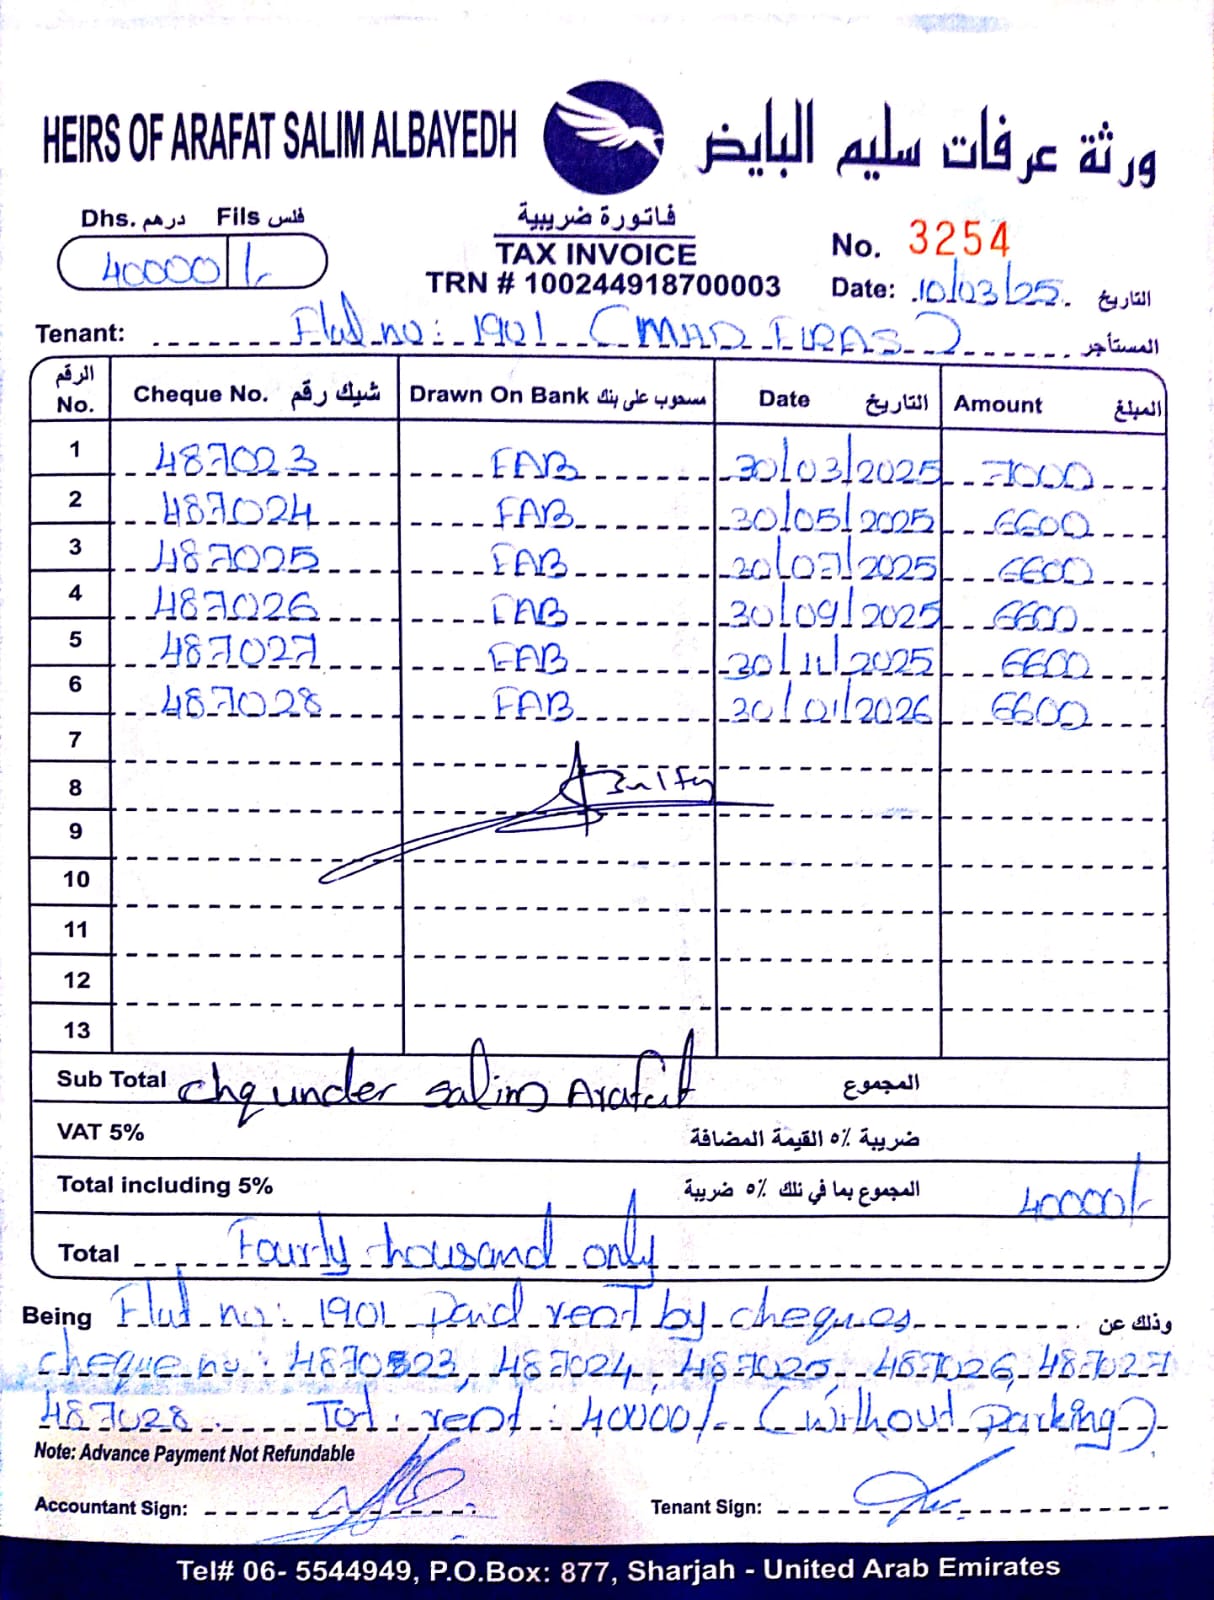 HEIRS OF ARAFAT SALIM ALBAYEDH ورثة عرفات سليم البايض
Dhs. درهم Fils فلس
40000 /-
فاتورة ضريبية
TAX INVOICE
TRN # 100244918700003
No. 3254
Date: 10/03/25. التاريخ
Tenant: Flat no: 1901 (MHD FIRAS) المستأجر
الرقم No. Cheque No. شيك رقم Drawn On Bank مسحوب على بنك Date التاريخ Amount المبلغ
1 487023 FAB 30/03/2025 7000
2 487024 FAB 30/05/2025 6600
3 487025 FAB 30/07/2025 6600
4 487026 FAB 30/09/2025 6600
5 487027 FAB 30/11/2025 6600
6 487028 FAB 30/01/2026 6600
7
8
9
10
11
12
13
Sub Total chq under Salim Arafat المجموع
VAT 5% ضريبة ٥٪ القيمة المضافة
Total including 5% المجموع بما في تلك ٥٪ ضريبة 40000/-
Total Fourty thousand only
Being Flat no: 1901 paid rent by cheques وذلك عن
cheque no: 4870323, 487024, 487025, 487026, 487027
487028. Tot. rent: 40000/- (without parking)
Note: Advance Payment Not Refundable
Accountant Sign: Tenant Sign:
Tel# 06- 5544949, P.O.Box: 877, Sharjah - United Arab Emirates